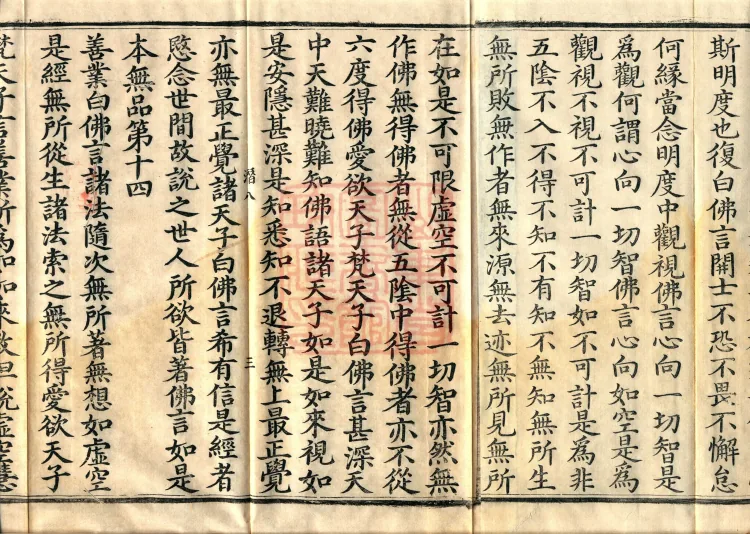 斯明度也復白佛言闓士不恐不畏不懈怠
何緣當念明度中觀視佛言心向一切智是
為觀何謂心向一切智佛言心向如空是為
觀視不視不可計一切智如不可計是為非
五陰不入不得不知不有知不無知無所生
無所敗無作者無來源無去迹無所見無所
在如是不可限虛空不可計一切智亦然無
作佛無得佛者無從五陰中得佛者亦不從
六度得佛愛欲天子梵天子白佛言甚深天
中天難曉難知佛語諸天子如是如來視如
是安隱甚深是知悉知不退轉無上最正覺
潛八
三
亦無最正覺諸天子白佛言希有信是經者
愍念世間故說之世人所欲皆著佛言如是
本無品第十四
善業白佛言諸法隨次無所著無想如虛空
是經無所從生諸法索之無所得愛欲天子
梵天子言善業所為如如來教但說虛空慧